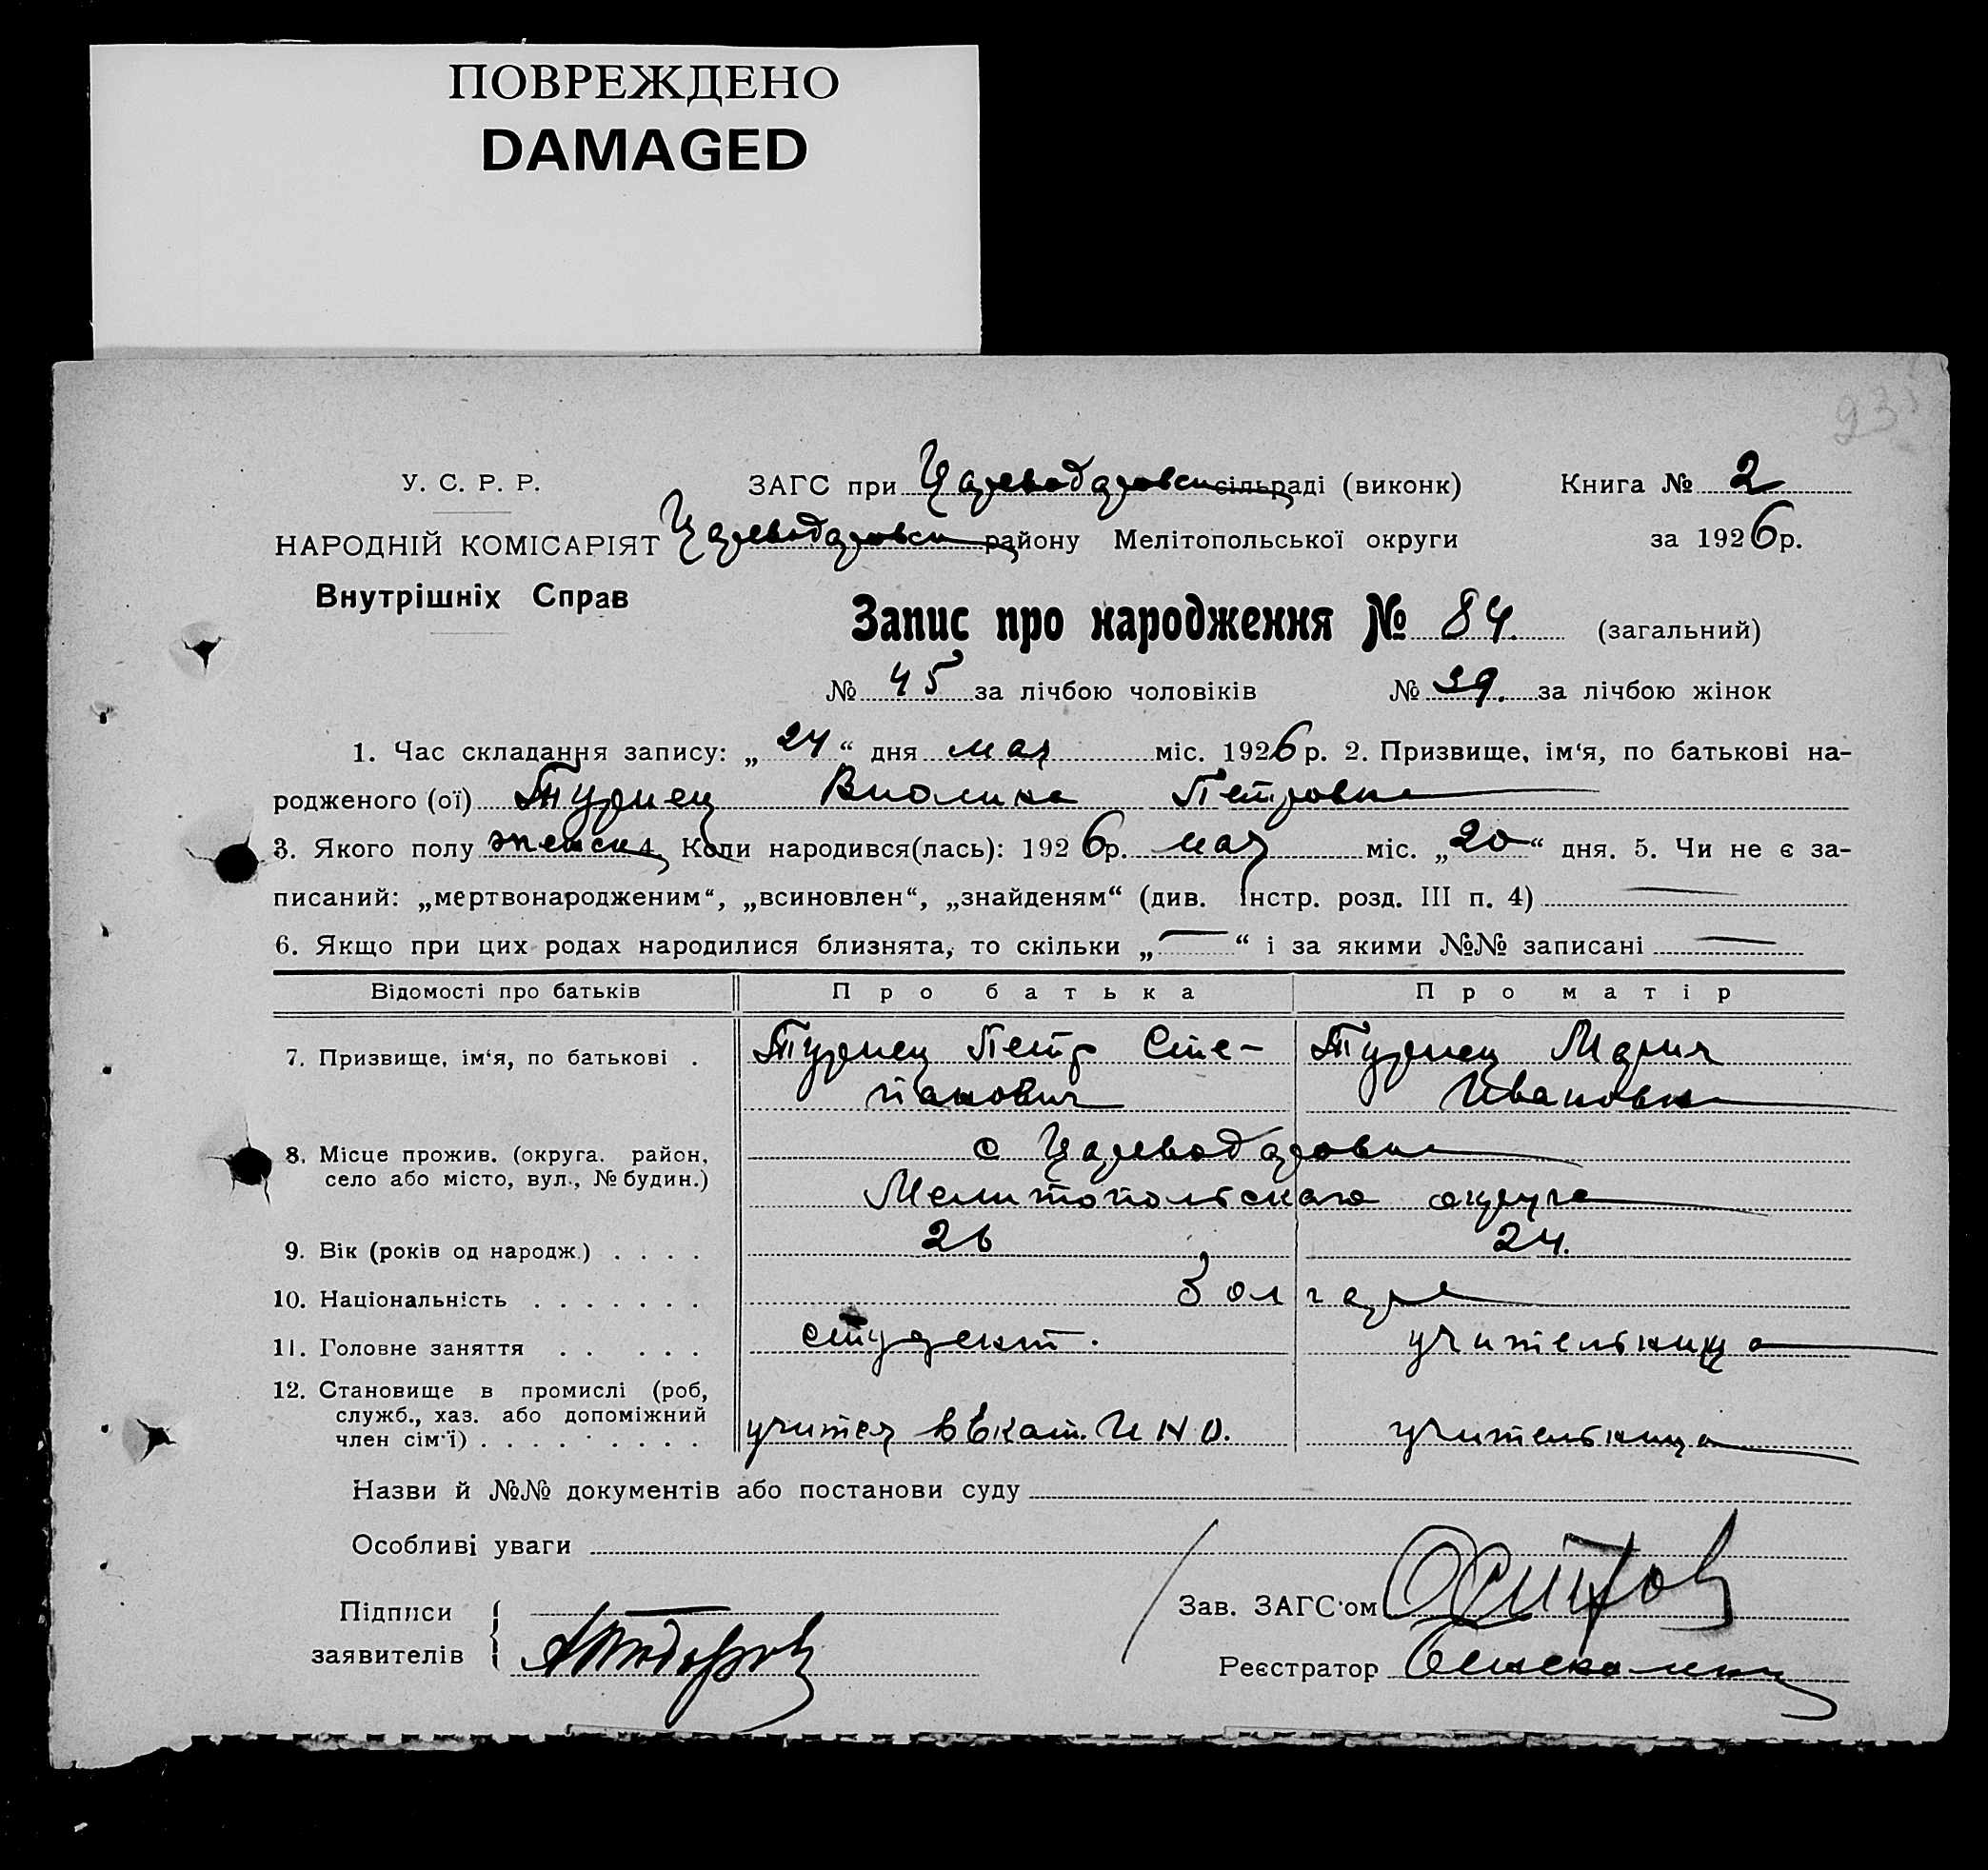 ПОВРЕЖДЕНО
DAMAGED
У. С. Р. Р.
НАРОДНІЙ КОМІСАРІЯТ
Внутрішніх Справ
ЗАГС при Цареводаровск сільраді (виконк) Книга № 2
Цареводаровск району Мелітопольської округи за 1926 р.
Запис про народження № 84. (загальний)
№ 45 за лічбою чоловіків № 39. за лічбою жінок
1. Час складання запису: „24“ дня мая міс. 1926 р. 2. Призвище, ім‘я, по батькові на-
родженого (ої) Туриец Виолина Петровна
3. Якого полу женск 4. Коли народився(лась): 1926р. мая міс. „20“ дня. 5. Чи не є за-
писаний: „мертвонародженим“, „всиновлен“, „знайденям“ (див. Інстр. розд. III п. 4) —
6. Якщо при цих родах народилися близнята, то скільки „—“ і за якими №№ записані —
Відомості про батьків Про батька Про матір
7. Призвище, ім‘я, по батькові . Туриец Петр Сте- Туриец Мария
панович Ивановна
8. Місце прожив. (округа. район, с Цареводаровка
село або місто, вул., № будин.) Мелитопольского округа
9. Вік (років од народж.) . . . . 26 24.
10. Національність . . . . . . . болгаре
11. Головне заняття . . . . . студент. учительница
12. Становище в промислі (роб,
служб., хаз. або допоміжний
член сім‘ї) . . . . . . . . . учител в Екат. И Н О. учительница
Назви й №№ документів або постанови суду
Особливі уваги
Підписи
заявителів
Зав. ЗАГС‘ом
Реєстратор